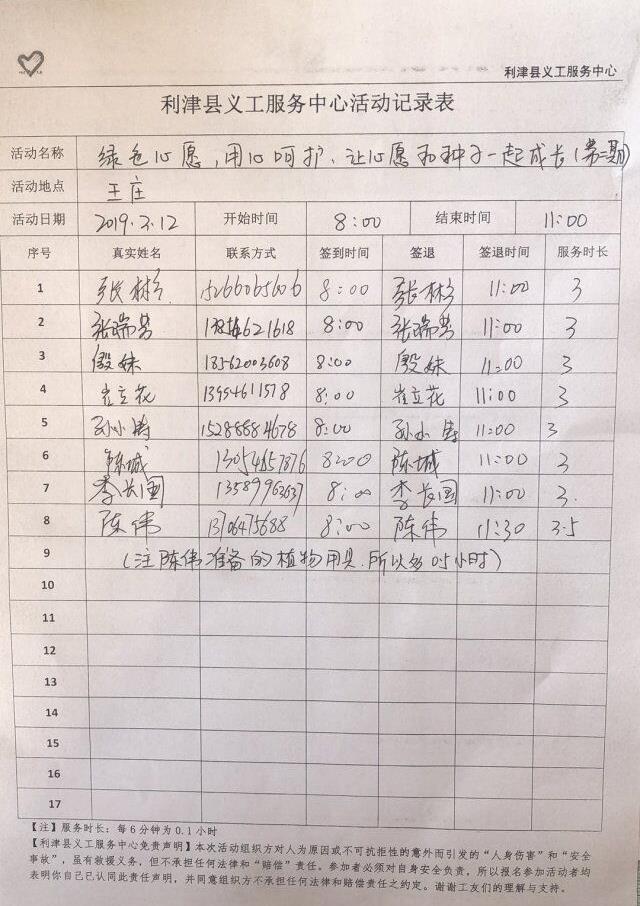 利津县义工服务中心
利津县义工服务中心活动记录表
活动名称 绿色心愿,用心呵护、让心愿和种子一起成长(第二期)
活动地点 王庄
活动日期 2019.3.12 开始时间 8:00 结束时间 11:00
序号 真实姓名 联系方式 签到时间 签退 签退时间 服务时长
1 张彬 15266065606 8:00 张彬 11:00 3
2 张瑞芳 8:00 张瑞芳 11:00 3
3 殷妹 18562003608 8:00 殷妹 11:00 3
4 崔立花 13954611578 8:00 崔立花 11:00 3
5 孙小涛 15288884678 8:00 孙小涛 11:00 3
6 陈城 13054657876 8:00 陈城 11:00 3
7 李长国 13589963637 8:00 李长国 11:00 3.
8 陈伟 13706475688 8:00 陈伟 11:30 3.5
9 (注陈伟准备的植物用具.所以多0.5小时)
10
11
12
13
14
15
16
17
【注】服务时长:每6分钟为0.1小时
【利津县义工服务中心免责声明】本次活动组织方对人为原因或不可抗拒性的意外而引发的“人身伤害”和“安全
事故”,虽有救援义务,但不承担任何法律和“赔偿”责任。参加者必须对自身安全负责,所以报名参加活动者均
表明你自己已认同此责任声明,并同意组织方不承担任何法律和赔偿责任之约定。谢谢工友们的理解与支持。